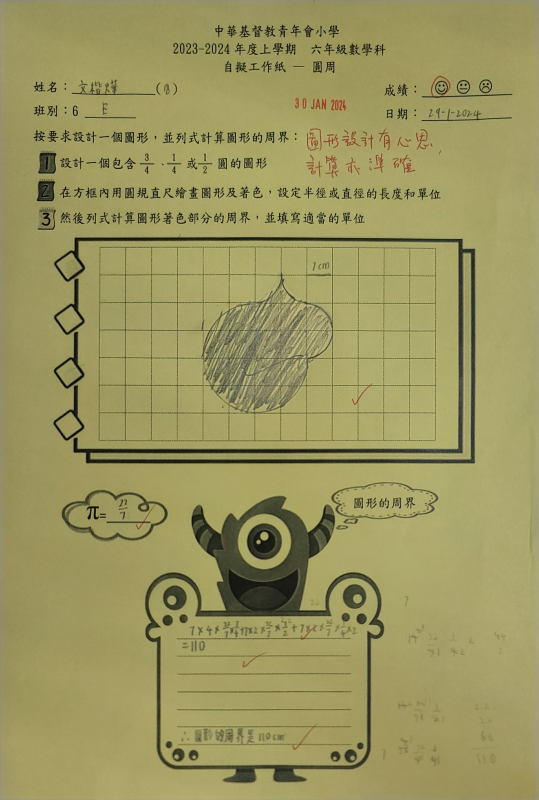 中華基督教青年會小學
2023-2024 年度上學期 六年級數學科
自擬工作紙 — 圓周
姓名：文楷 (8) 成績：
30 JAN 2024
班別：6 E 日期：29-1-2024
按要求設計一個圖形，並列式計算圖形的周界：
圖形設計有心思，
計算亦準確
1 設計一個包含 3/4、1/4 或 1/2 圓的圖形
2 在方框內用圓規直尺繪畫圖形及著色，設定半徑或直徑的長度和單位
3 然後列式計算圖形著色部分的周界，並填寫適當的單位
1cm
π= 22/7
圖形的周界
=110
∴ 圖形的周界是 110cm